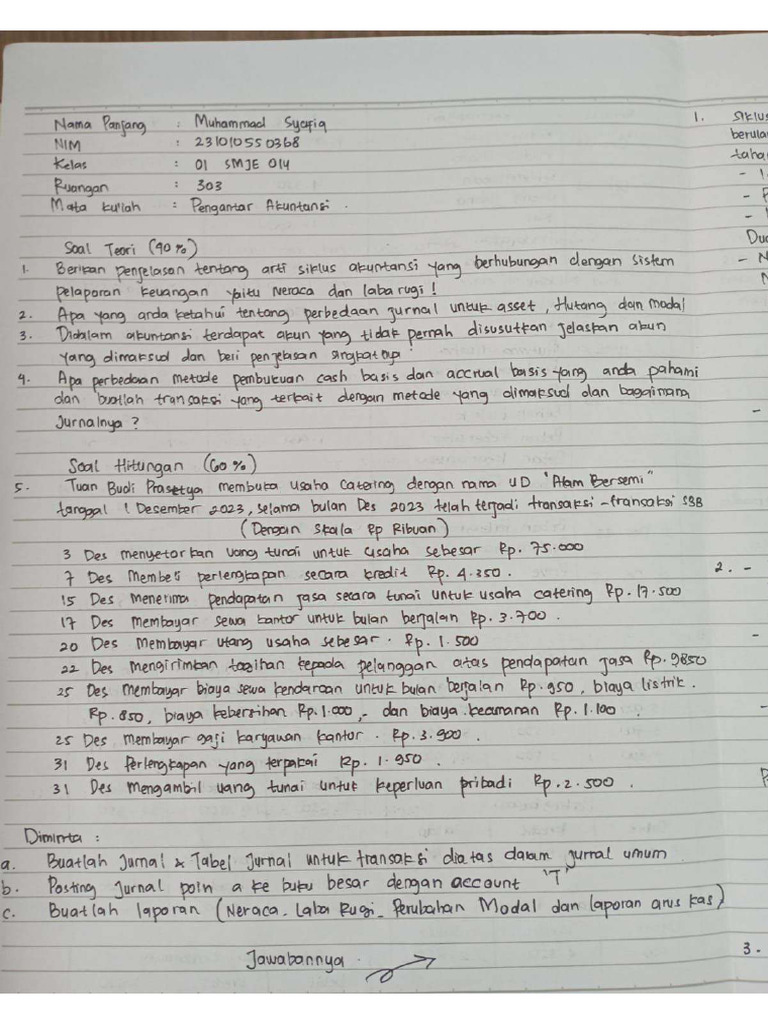 Nama Panjang : Muhammad Syafiq
NIM : 231010550368
Kelas : 01 SMJE 014
Ruangan : 303
Mata kuliah : Pengantar Akuntansi.
Soal Teori (40%)
1. Berikan penjelasan tentang arti siklus akuntansi yang berhubungan dengan sistem
pelaporan keuangan yaitu Neraca dan laba rugi!
2. Apa yang anda ketahui tentang perbedaan jurnal untuk asset, Hutang dan modal
3. Didalam akuntansi terdapat akun yang tidak pernah disusutkan jelaskan akun
yang dimaksud dan beri penjelasan singkatnya!
4. Apa perbedaan metode pembukuan cash basis dan accrual basis yang anda pahami
dan buatlah transaksi yang terkait dengan metode yang dimaksud dan bagaimana
Jurnalnya ?
Soal Hitungan (60%)
5. Tuan Budi Prasetya membuka usaha Catering dengan nama UD "Alam Bersemi"
tanggal 1 Desember 2023, selama bulan Des 2023 telah terjadi transaksi-transaksi SBB
(Dengan Skala Rp Ribuan)
3 Des menyetorkan uang tunai untuk usaha sebesar Rp. 75.000
7 Des Membeli perlengkapan secara kredit Rp. 4.350.
15 Des Menerima pendapatan jasa secara tunai untuk usaha catering Rp. 17.500
17 Des Membayar sewa kantor untuk bulan berjalan Rp. 3.700.
20 Des Membayar utang usaha sebesar. Rp. 1.500
22 Des Mengirimkan tagihan kepada pelanggan atas pendapatan jasa Rp. 9850
25 Des Membayar biaya sewa kendaraan untuk bulan berjalan Rp. 950, biaya listrik.
Rp. 850, biaya kebersihan Rp. 1.000,- dan biaya keamanan Rp. 1.100.
25 Des Membayar gaji karyawan kantor. Rp. 3.900.
31 Des Perlengkapan yang terpakai Rp. 1.950.
31 Des Mengambil uang tunai untuk keperluan pribadi Rp. 2.500.
Diminta :
a. Buatlah Jurnal & Tabel Jurnal untuk transaksi diatas dalam jurnal umum
b. Posting Jurnal poin a ke buku besar dengan account 'T'
c. Buatlah laporan (Neraca. Laba Rugi. Perubahan Modal dan laporan arus kas)
Jawabannya.
1. Siklus
berula
taha
2. -
3 -